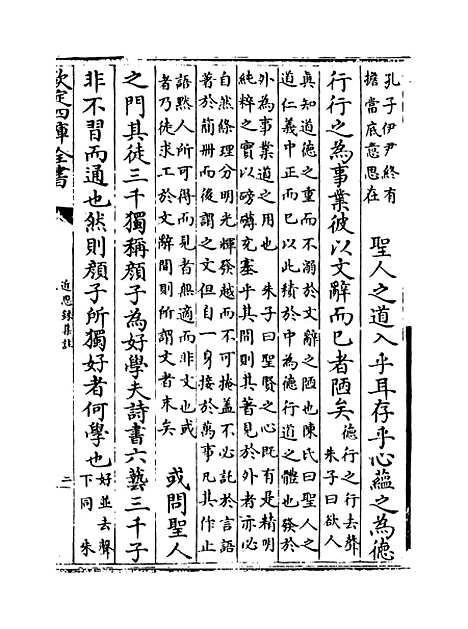 孔子伊尹終有
擔當底意思在
聖人之道入乎耳存乎心蘊之為德
行行之為事業彼以文辭而已者陋矣
德行之行去聲
朱子曰欲人
真知道德之重而不溺於文辭之陋也陳氏曰聖人之
道仁義中正而已以此積於中為德行道之體也發於
外為事業道之用也　朱子曰聖賢之心既有是精明
純粹之實以磅礴充塞乎其間則其著見於外者亦必
自然條理分明光輝發越而不可掩蓋不必託於言語
著於簡冊而後謂之文但自一身接於萬事凡其作止
語黙人所可得而見者無適而非文也或
者乃徒求工於文辭間則所謂文者末矣
或問聖人
之門其徒三千獨稱顔子為好學夫詩書六藝三千子
非不習而通也然則顔子所獨好者何學也
好並去聲
下同　朱
欽定四庫全書
近思録集註
二